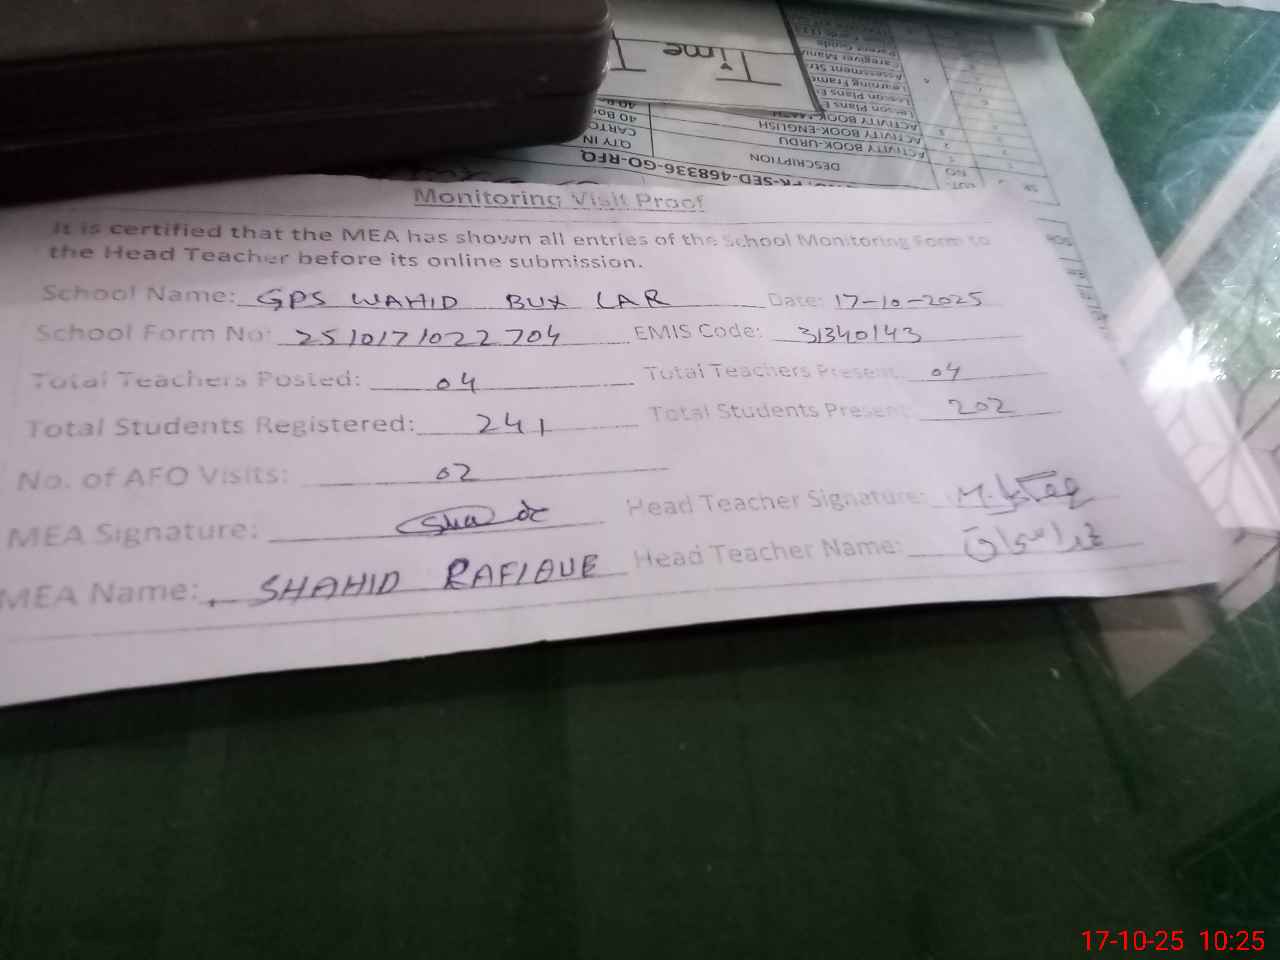 Time
DESCRIPTION
QTY IN
ACTIVITY BOOK-URDU
ACTIVITY BOOK-ENGLISH
PK-SED-468336-GO-RFQ
Monitoring Visit Proof
It is certified that the MEA has shown all entries of the School Monitoring Form to
the Head Teacher before its online submission.
School Name: GPS WAHID BUX LAR Date: 17-10-2025
School Form No: 2510171022704 EMIS Code: 31340143
Total Teachers Posted: 04 Total Teachers Present: 04
Total Students Registered: 241 Total Students Present: 202
No. of AFO Visits: 02
MEA Signature: Head Teacher Signature:
MEA Name: SHAHID RAFIQUE Head Teacher Name:
17-10-25 10:25